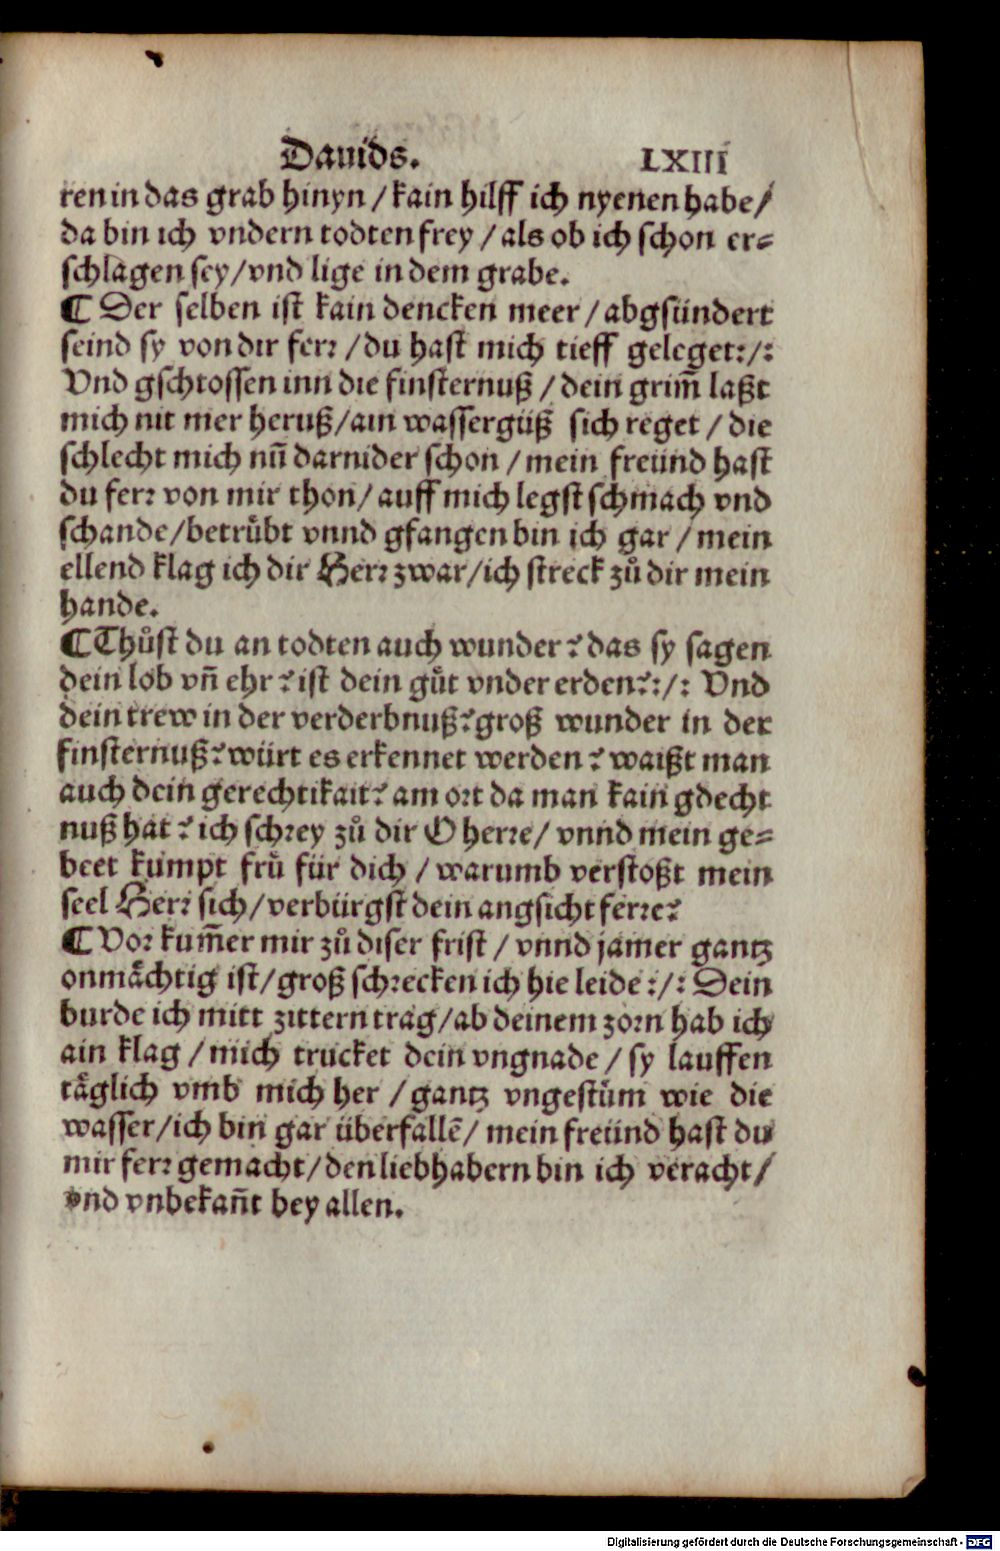 Dauids. LXIII
ren in das grab hinyn / kain hilff ich nyenen habe /
da bin ich vndern todten frey / als ob ich schon er⸗
schlagen sey / vnd lige in dem grabe.
¶ Der selben ist kain dencken meer / abgsündert
seind sy von dir ferr / du hast mich tieff geleget :/:
Vnd gschtossen inn die finsternuß / dein grim̃ laßt
mich nit mer heruß / ain wassergüß sich reget / die
schlecht mich nũ darnider schon / mein freünd hast
du ferr von mir thon / auff mich legst schmach vnd
schande / betruͤbt vnnd gfangen bin ich gar / mein
ellend klag ich dir Herr zwar / ich streck zů dir mein
hande.
¶ Thůst du an todten auch wunder? das sy sagen
dein lob vñ ehr? ist dein guͤt vnder erden? :/: Vnd
dein trew in der verderbnuß? groß wunder in der
finsternuß? würt es erkennet werden? waißt man
auch dein gerechtikait? am ort da man kain gdecht
nuß hat? ich schrey zů dir O herre / vnnd mein ge⸗
beet kumpt fruͤ für dich / warumb verstoßt mein
seel Herr sich / verbürgst dein angsicht ferre?
¶ Vor kum̃er mir zů diser frist / vnnd jamer gantz
onmaͤchtig ist / groß schrecken ich hie leide :/: Dein
burde ich mitt zittern trag / ab deinem zorn hab ich
ain klag / mich trucket dein vngnade / sy lauffen
taͤglich vmb mich her / gantz vngestuͤm wie die
wasser / ich bin gar überfallẽ / mein freünd hast du
mir ferr gemacht / den liebhabern bin ich veracht /
vnd vnbekañt bey allen.
Digitalisierung gefördert durch die Deutsche Forschungsgemeinschaft - DFG